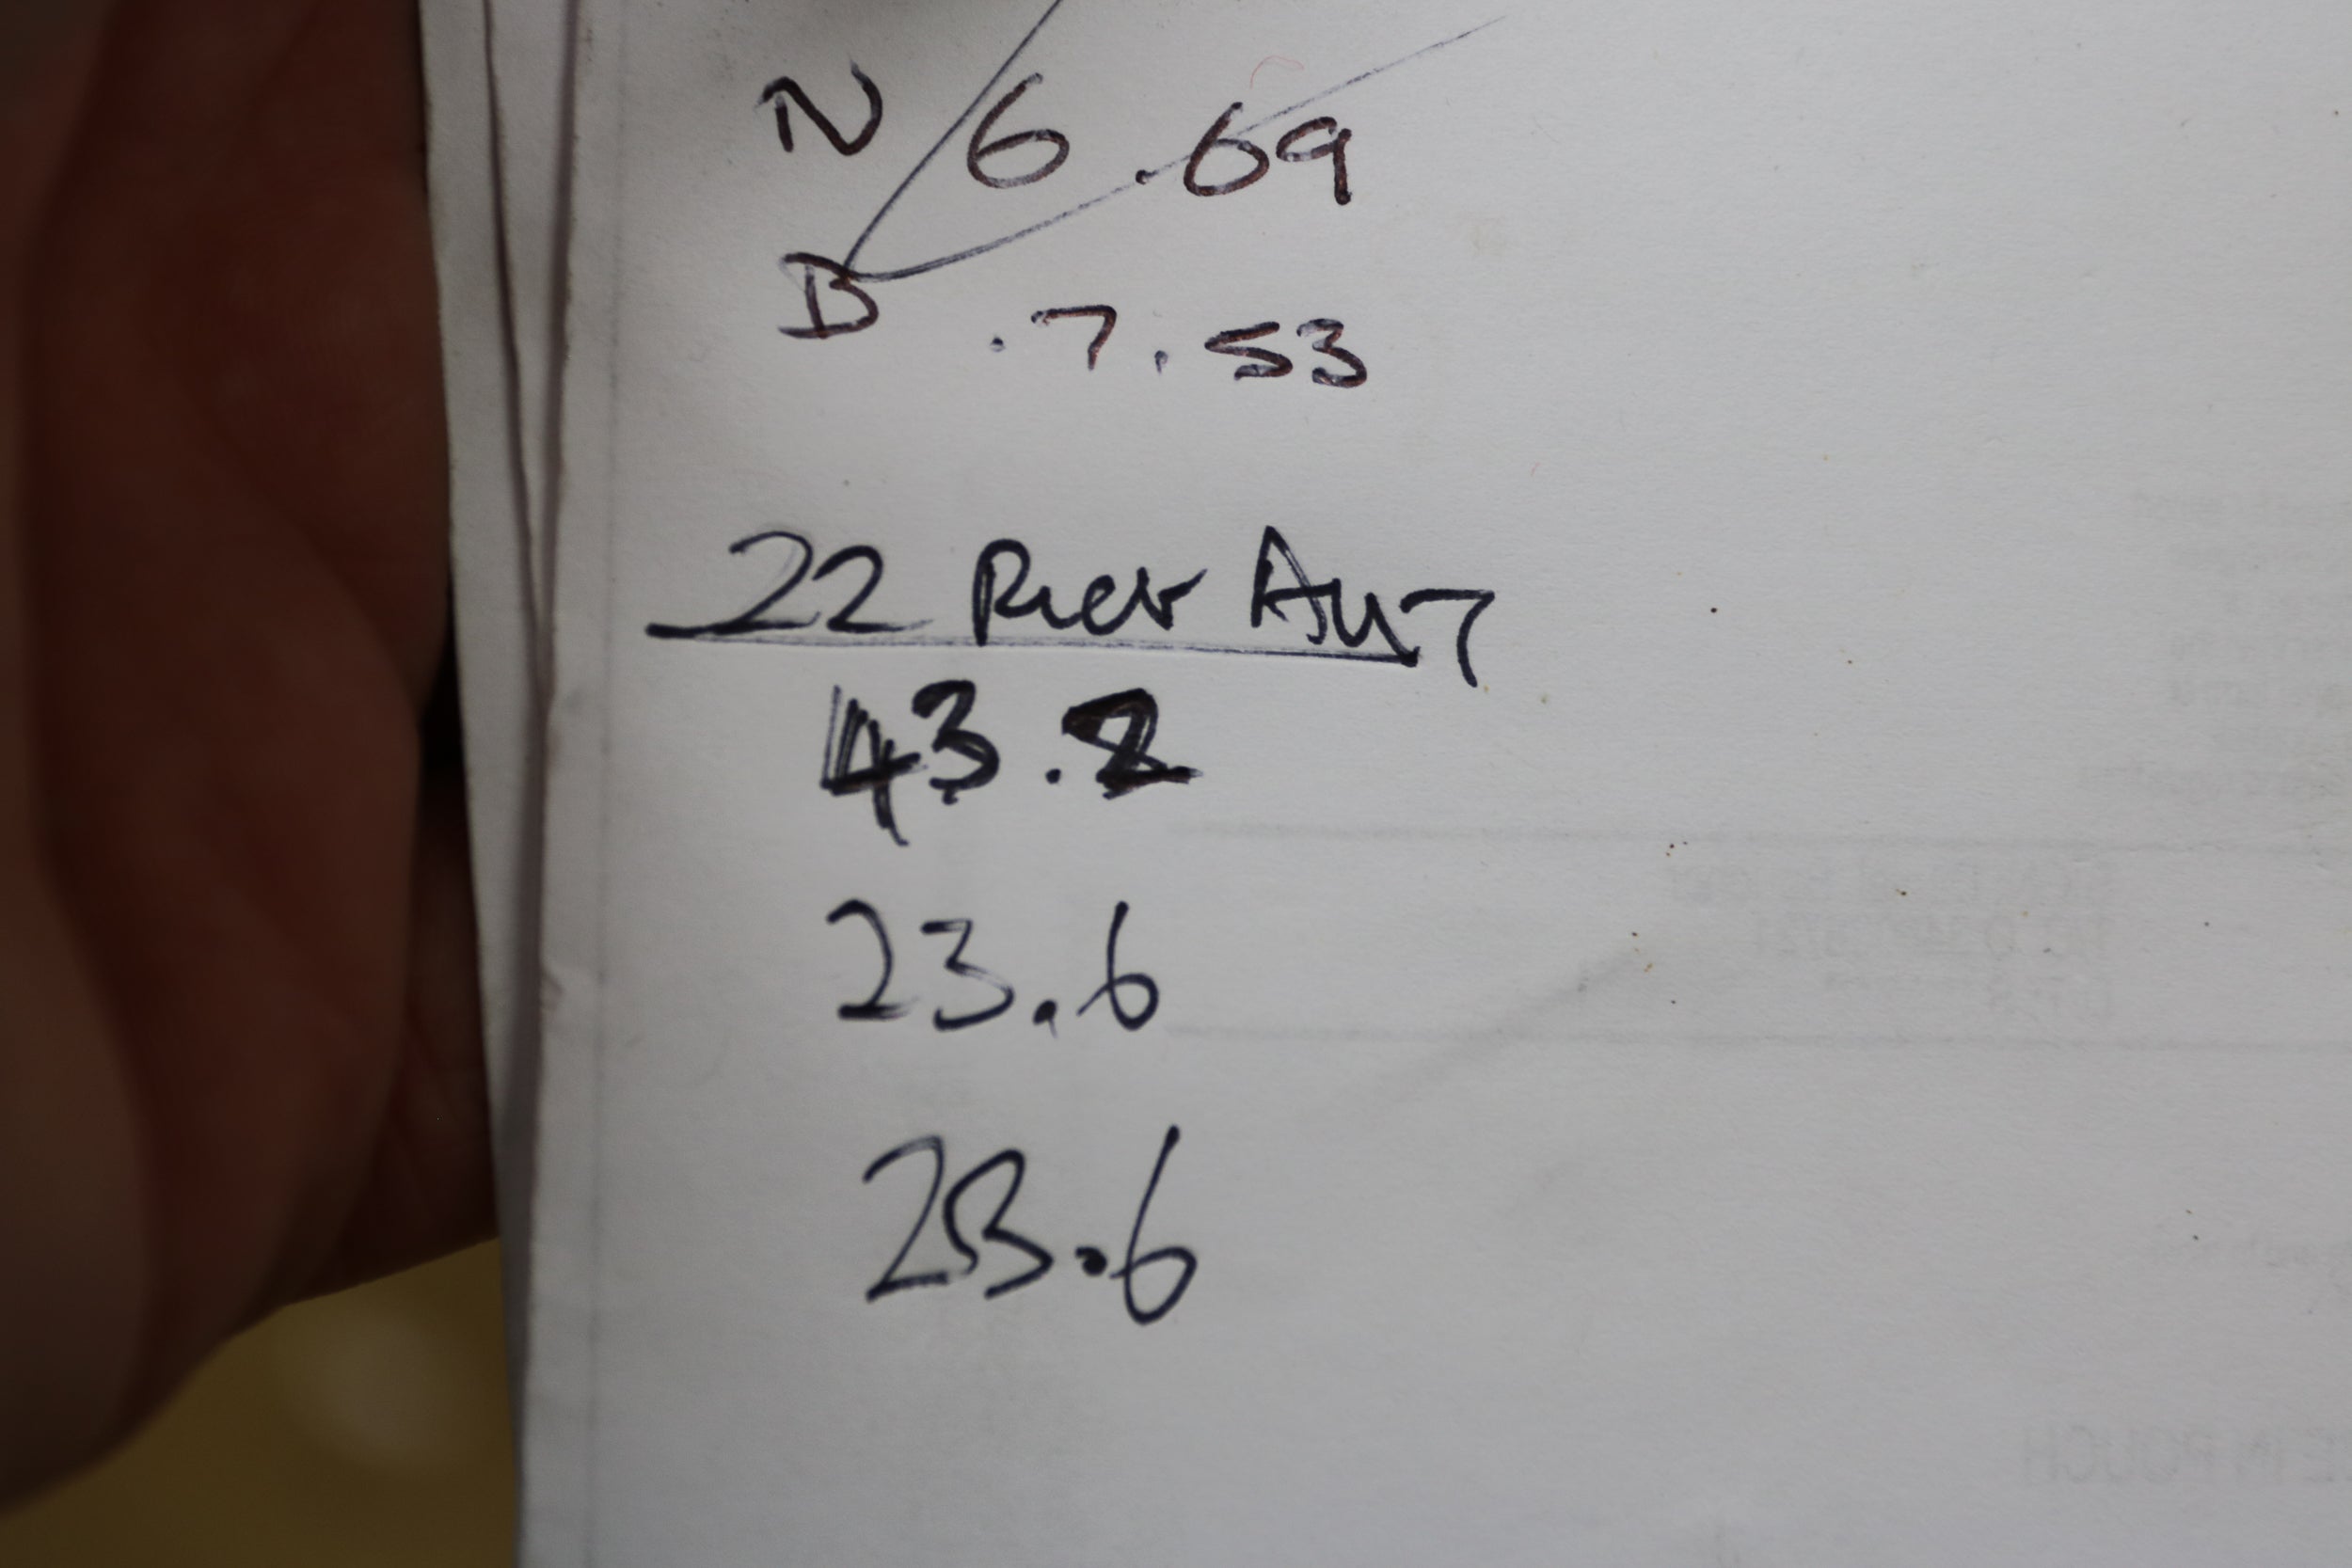 N 6.69
D .7.53
22 Rick Aut
43.2
23.6
23.6